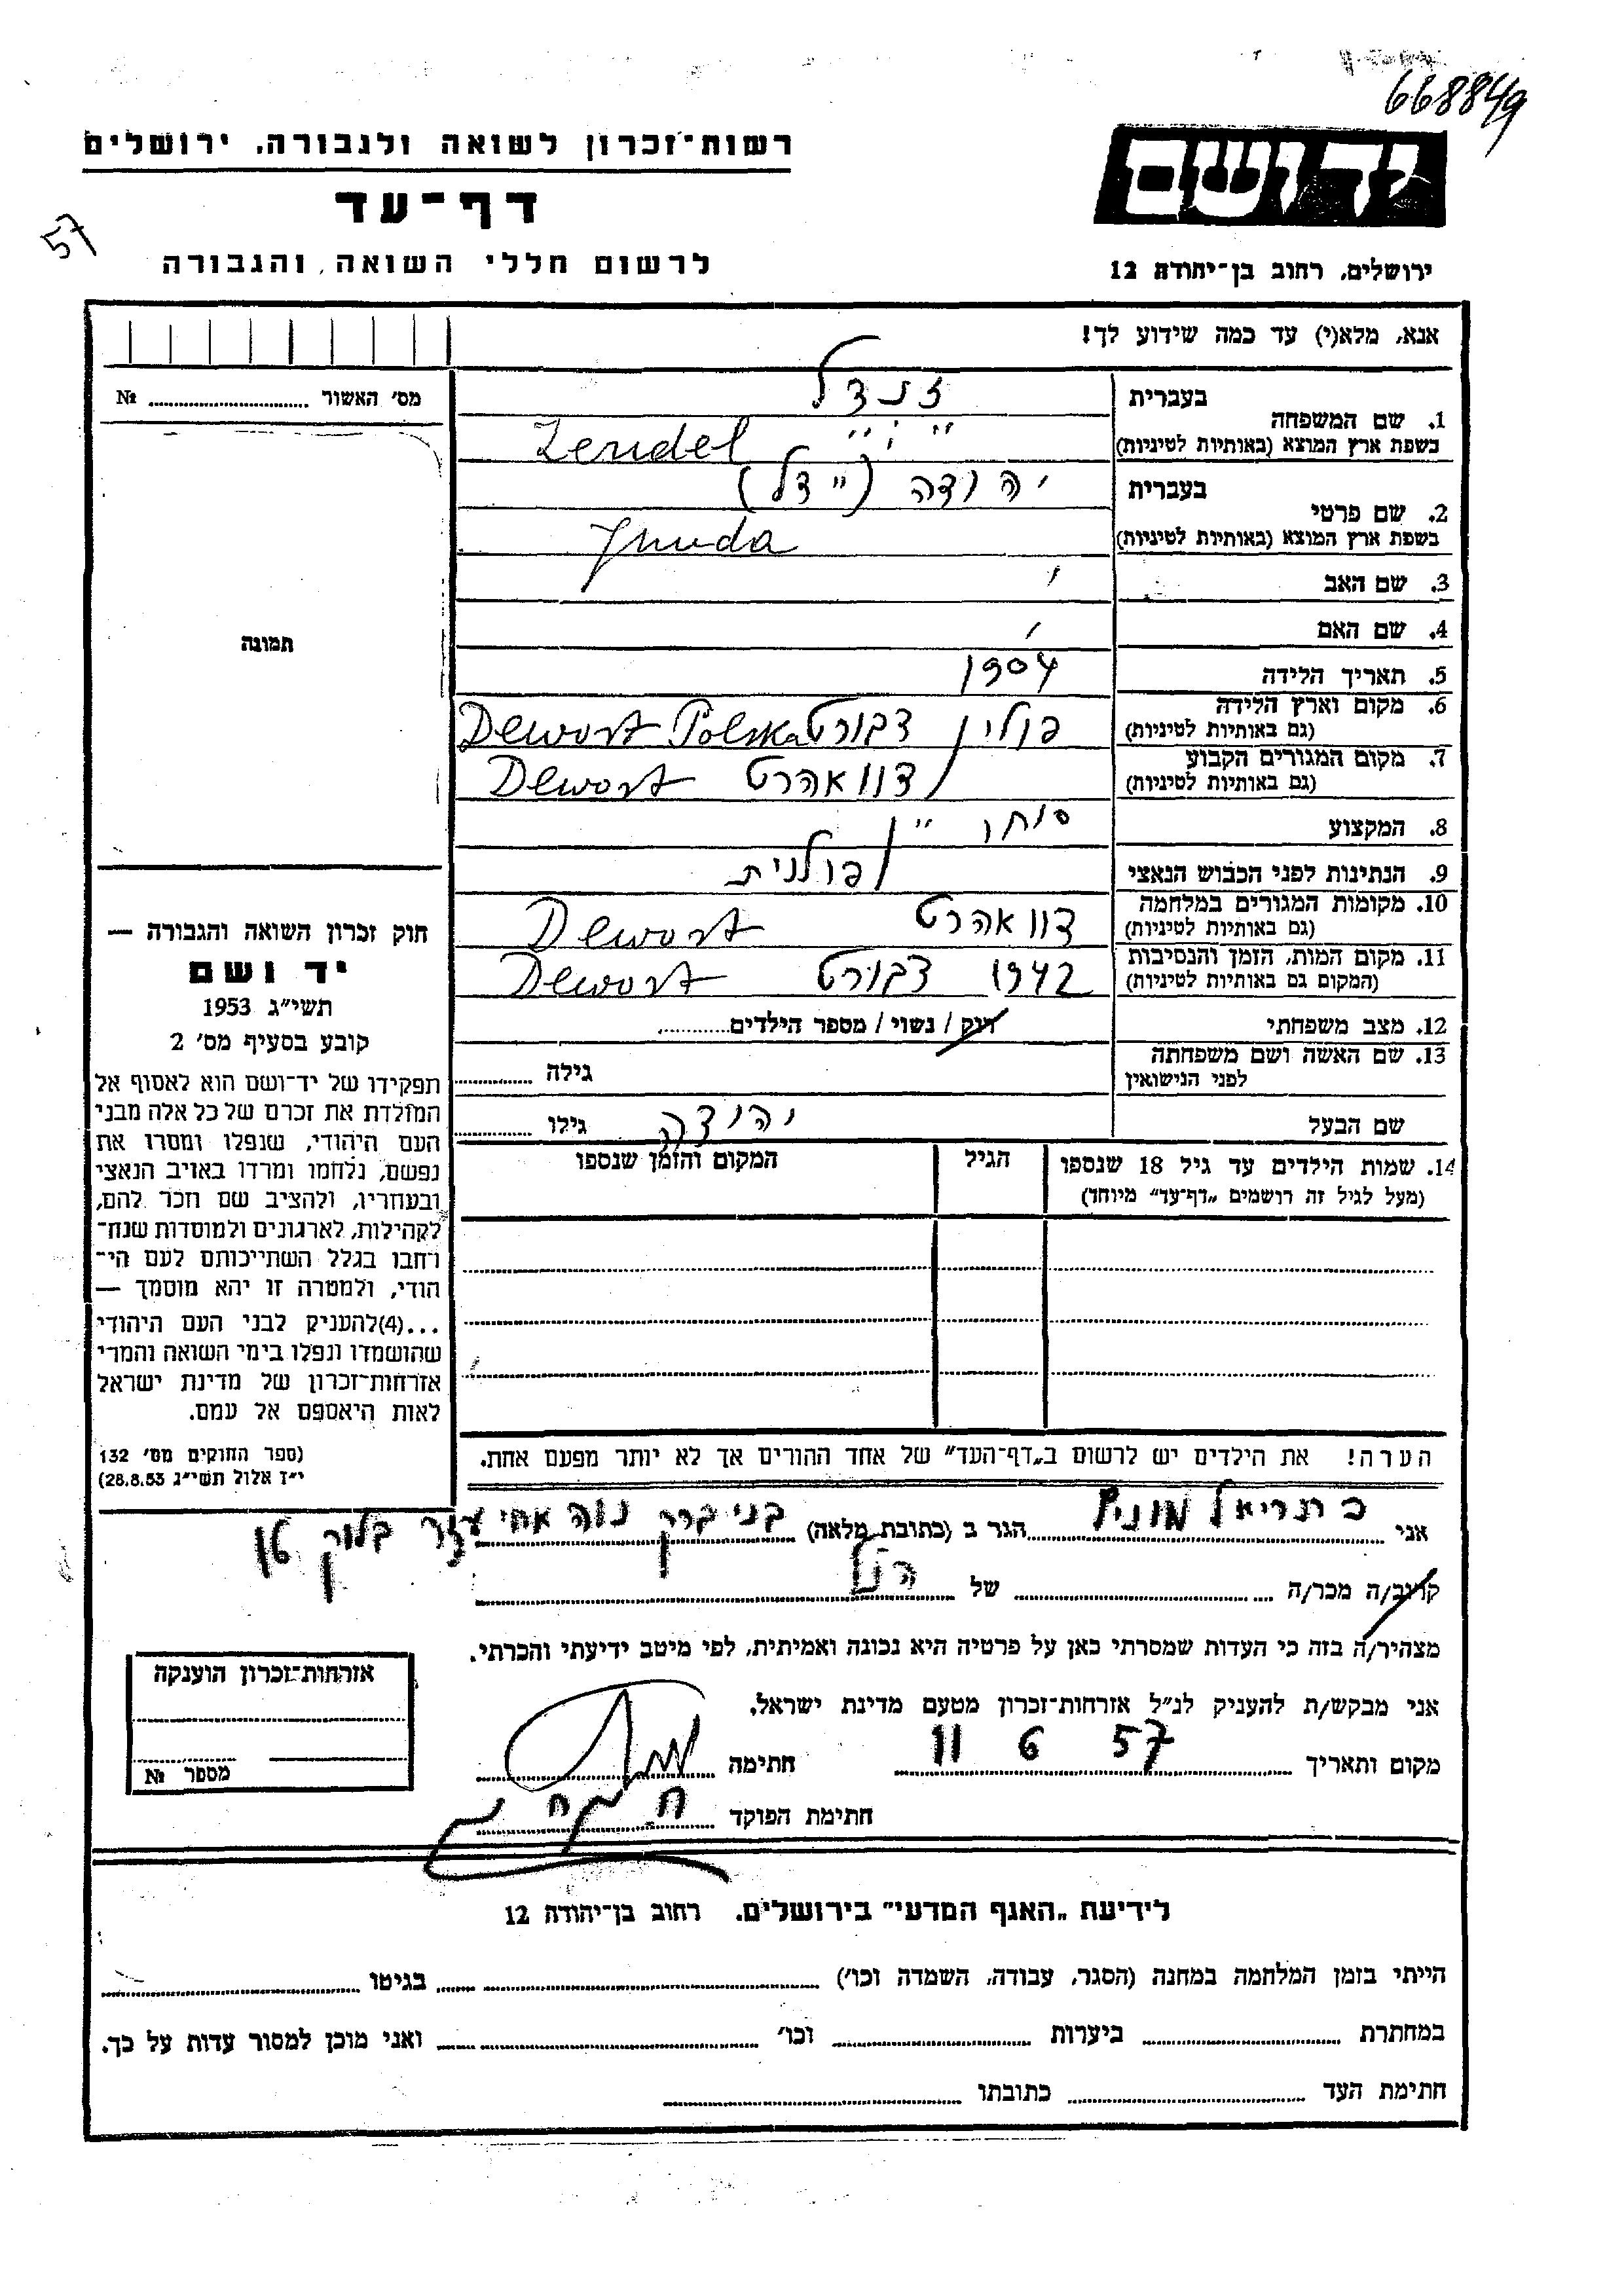 668849
רשות־זכרון לשואה ולגבורה, ירושלים
יד ושם
דף־עד
57
לרשום חללי השואה והגבורה
ירושלים, רחוב בן־יהודה 12
אנא, מלא(י) עד כמה שידוע לך!
מס׳ האשור № 
1. שם המשפחה
בעברית זנדל
בשפת ארץ המוצא (באותיות לטיניות) Zendel
2. שם פרטי
בעברית יהודה (יידל)
בשפת ארץ המוצא (באותיות לטיניות) Jhuda
3. שם האב
4. שם האם
5. תאריך הלידה 1904
6. מקום וארץ הלידה
(גם באותיות לטיניות) פולין דבורט Dewort Polska
7. מקום המגורים הקבוע
(גם באותיות לטיניות) דוואהרט Dewort
8. המקצוע סוחר
9. הנתינות לפני הכבוש הנאצי פולנית
10. מקומות המגורים במלחמה
(גם באותיות לטיניות) דוואהרט Dewort
11. מקום המות, הזמן והנסיבות
(המקום גם באותיות לטיניות) 1942 דבורט Dewort
12. מצב משפחתי רוק / נשוי / מספר הילדים
13. שם האשה ושם משפחתה
לפני הנישואין גילה
שם הבעל יהודה גילו
14. שמות הילדים עד גיל 18 שנספו
(מעל לגיל זה רושמים „דף־עד” מיוחד)
הגיל
המקום והזמן שנספו
הערה! את הילדים יש לרשום ב„דף־העד” של אחד ההורים אך לא יותר מפעם אחת.
תמונה
חוק זכרון השואה והגבורה —
יד ושם
תשי״ג 1953
קובע בסעיף מס׳ 2
תפקידו של יד־ושם הוא לאסוף אל
המולדת את זכרם של כל אלה מבני
העם היהודי, שנפלו ומסרו את
נפשם, נלחמו ומרדו באויב הנאצי
ובעוזריו, ולהציב שם וזכר להם,
לקהילות, לארגונים ולמוסדות שנח־
רחבו בגלל השתייכותם לעם הי־
הודי, ולמטרה זו יהא מוסמך —
...(4) להעניק לבני העם היהודי
שהושמדו ונפלו בימי השואה והמרי
אזרחות־זכרון של מדינת ישראל
לאות היאספם אל עמם.
(ספר החוקים מס׳ 132
י״ז אלול תשי״ג 28.8.53)
אני כתריאל הגר ב (כתובת מלאה) בני ברק נוה אחיעזר בלוק
קרוב/ה מכר/ה של הנ״ל
מצהיר/ה בזה כי העדות שמסרתי כאן על פרטיה היא נכונה ואמיתית, לפי מיטב ידיעתי והכרתי.
אני מבקש/ת להעניק לנ״ל אזרחות־זכרון מטעם מדינת ישראל.
מקום ותאריך 11 6 57 חתימה
חתימת הפוקד
אזרחות־זכרון הוענקה
מספר №
לידיעת „האגף המדעי” בירושלים, רחוב בן־יהודה 12
הייתי בזמן המלחמה במחנה (הסגר, עבודה, השמדה וכו׳) בגיטו
במחתרת ביערות וכו׳ ואני מוכן למסור עדות על כך.
חתימת העד כתובתו